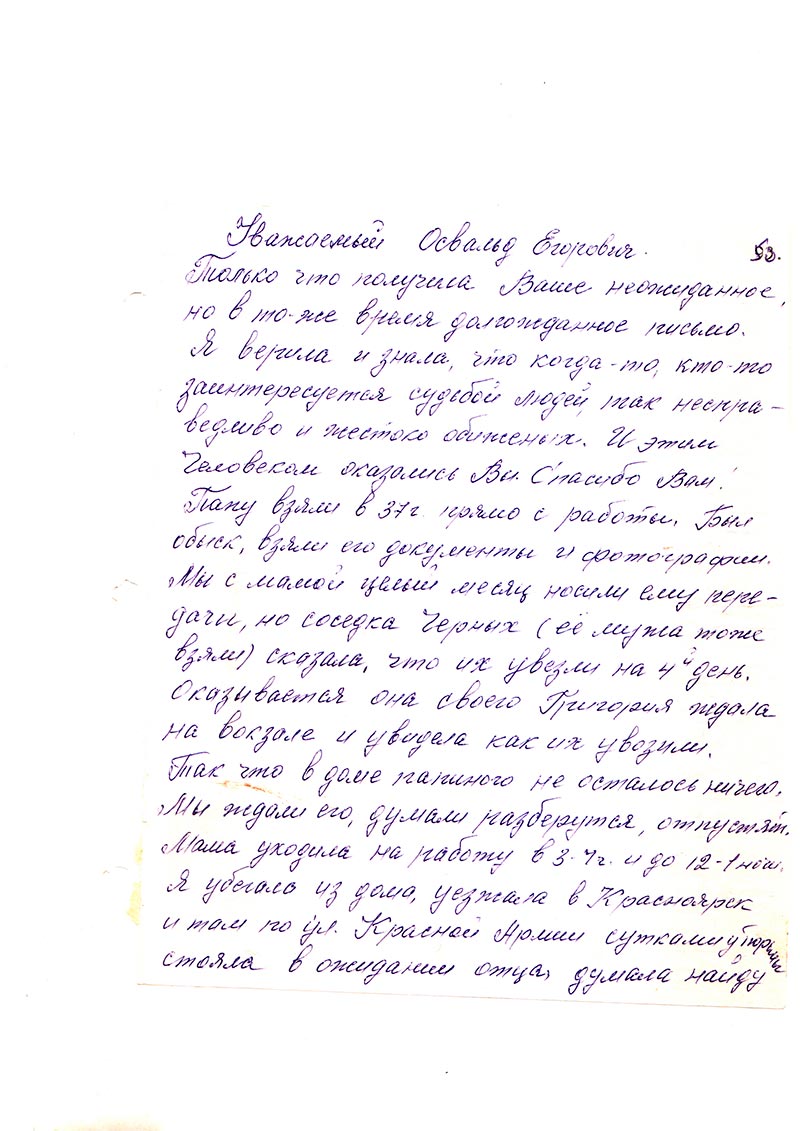 Уважаемый Освальд Егорович. 53.
Только что получила Ваше неожиданное,
но в то-же время долгожданное письмо.
Я верила и знала, что когда-то, кто-то
заинтересуется судьбой людей, так неспра-
ведливо и жестоко обиженых. И этим
Человеком оказались Вы. Спасибо Вам!
Папу взяли в 37г. прямо с работы. Был
обыск, взяли его документы и фотографии.
Мы с мамой целый месяц носили ему пере-
дачи, но соседка Черных (её мужа тоже
взяли) сказала, что их увезли на 4й день.
Оказывается она своего Григория ждала
на вокзале и увидела как их увозили.
Так что в доме папиного не осталось ничего.
Мы ждали его, думали разберутся, отпустят.
Мама уходила на работу в 3-4г. и до 12-1 ночи.
Я убегала из дома, уезжала в Красноярск
и там по ул. Красной Армии сутками у тюрьмы
стояла в ожидании отца, думала найду